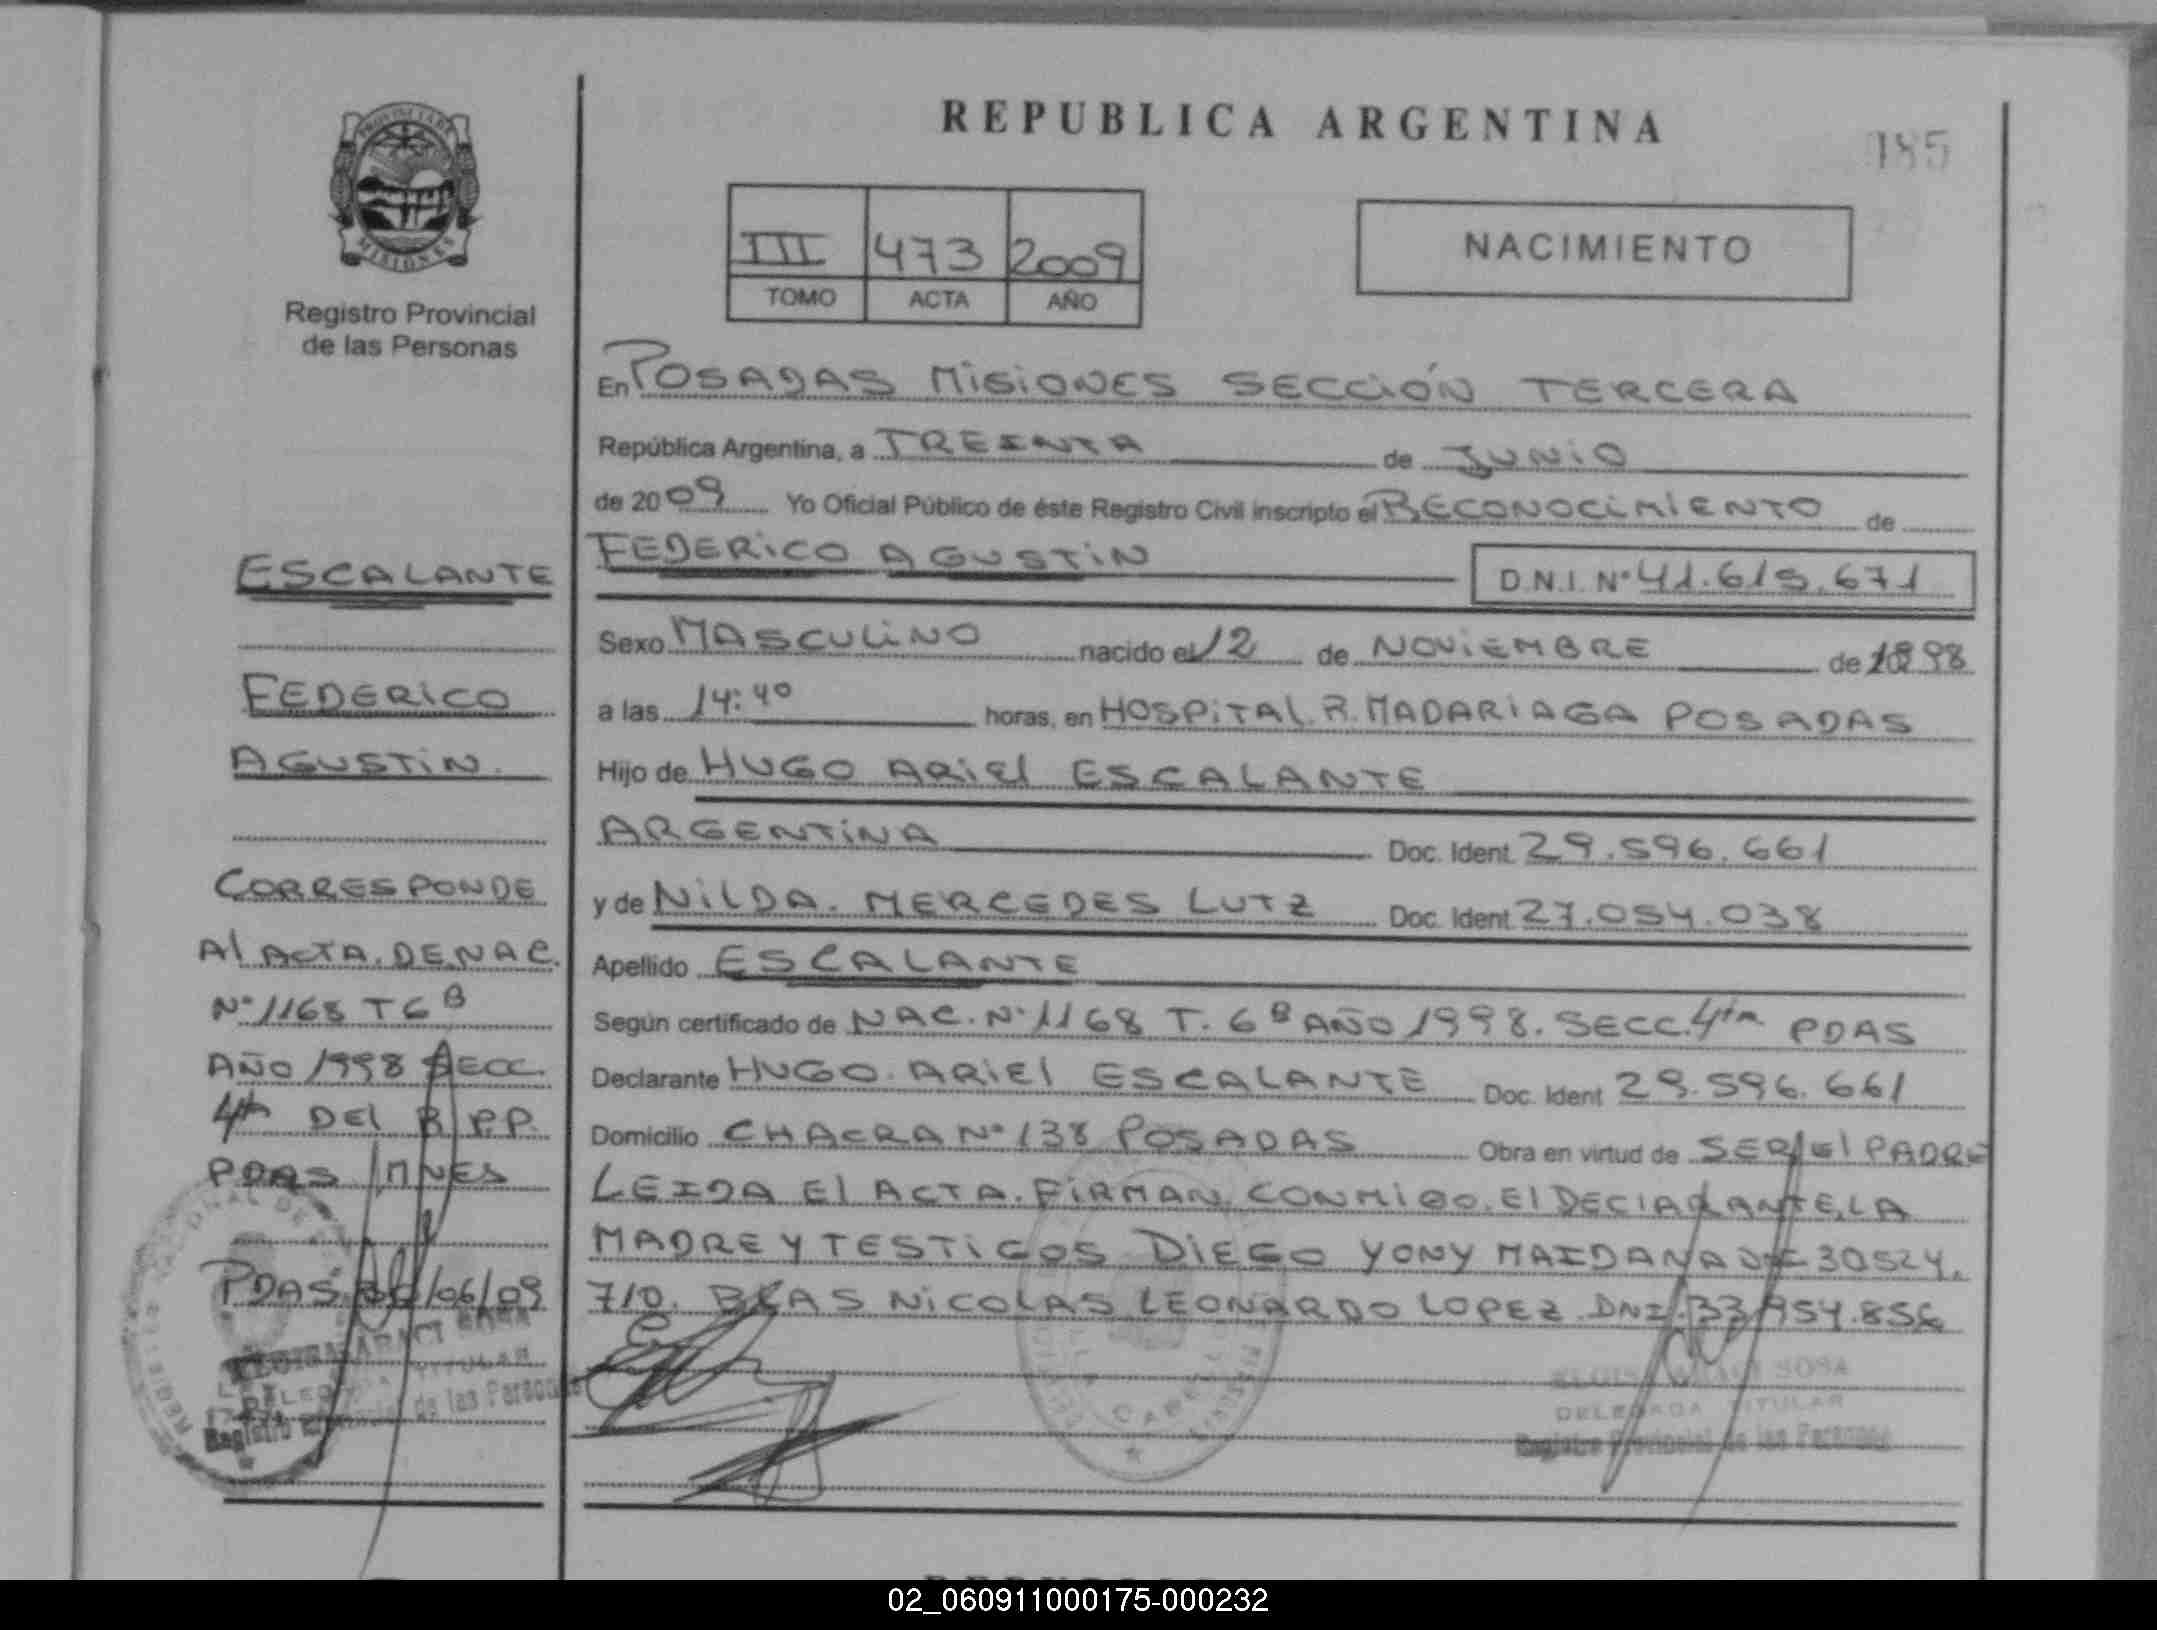 REPUBLICA ARGENTINA
185
PROVINCIA DE
MISIONES
Registro Provincial
de las Personas
III 473 2009
TOMO ACTA AÑO
NACIMIENTO
ESCALANTE
FEDERICO
AGUSTIN.
CORRESPONDE
Al ACTA. DE NAC.
N° 1168 T 6 B
AÑO 1998 SECC.
4ta DEl R.P.P.
PDAS MNES
PDAS. 30/06/09
En POSADAS MISIONES SECCIÓN TERCERA
República Argentina, a TREINTA de JUNIO
de 2009 Yo Oficial Público de éste Registro Civil inscripto el RECONOCIMIENTO de
FEDERICO AGUSTIN
D.N.I. N° 41.615.671
Sexo MASCULINO nacido el 12 de NOVIEMBRE de 1998
a las 14:40 horas, en HOSPITAL. R. MADARIAGA POSADAS
Hijo de HUGO ARIEl ESCALANTE
ARGENTINA Doc. Ident. 29.596.661
y de NILDA. MERCEDES LUTZ Doc. Ident. 27.054.038
Apellido ESCALANTE
Según certificado de NAC. N° 1168 T. 6 B AÑO 1998. SECC. 4ta PDAS
Declarante HUGO. ARIEl ESCALANTE Doc. Ident 29.596.661
Domicilio CHACRA N° 138 POSADAS Obra en virtud de SER El PADRE
LEIDA El ACTA. FIRMAN. CONMIGO. El DEClARANTE, LA
MADRE Y TESTIGOS DIEGO YONY MAIDANA DNI 30524.
710. BLAS NICOLAS LEONARDO LOPEZ. DNI. 33.954.856
SOSA
DELEGADA TITULAR
Registro Provincial de las Personas
TITULAR
Registro Provincial de las Personas
02_060911000175-000232